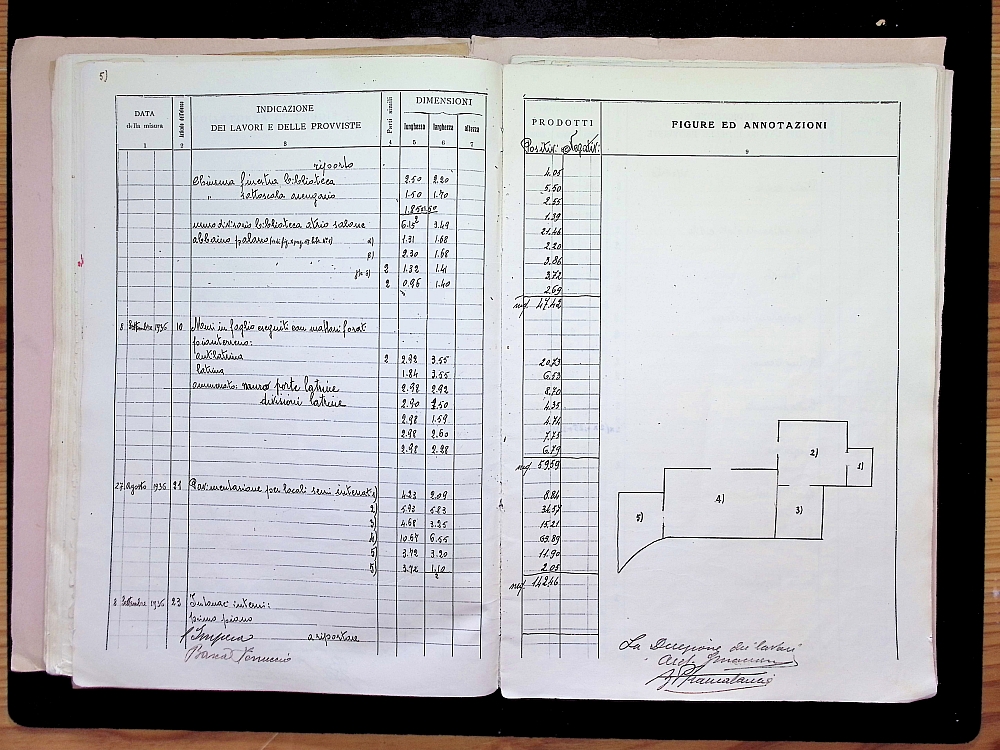 5)
DATA della misura
INDICAZIONE
DEI LAVORI E DELLE PROVVISTE
Parti simili
DIMENSIONI
lunghezza larghezza altezza
1 2 3 4 5 6 7
riporto
chiusura finestra biblioteca 2.50 2.20
" sottoscala arengario 1.50 1.70
muro divisorio biblioteca atrio salone 6.15 3.49
abbaino palazzo 1.31 1.68
2.30 1.68
2 1.32 1.41
2 0.96 1.40
8 Settembre 1936 10 Muri in foglio eseguiti con mattoni forat
pianterreno:
antilatrina 2 2.92 3.55
latrina 1.84 3.55
ammezzato: muro porte latrine 2.98 2.92
divisioni latrine 2.90 1.50
2.98 1.59
2.98 2.60
2.98 2.28
27 Agosto 1936 21 Pavimentazione per locali semi interrati 1) 4.23 2.09
2) 5.93 5.83
3) 4.68 3.25
4) 10.67 6.55
5) 3.72 3.20
5) 3.72 1.10
2
8 Settembre 1936 23 Intonaci interni:
primo piano
l'Impresa a riportare
PRODOTTI
Positivi Negativi
4.05
5.50
2.55
1.39
21.46
2.20
3.86
3.72
2.69
mq. 47.42
20.73
6.53
8.70
4.35
4.74
7.75
6.79
mq 59.59
8.84
34.57
15.21
69.89
11.90
2.05
mq. 142.46
FIGURE ED ANNOTAZIONI
9
2)
1)
4)
3)
5)
La Direzione dei lavori